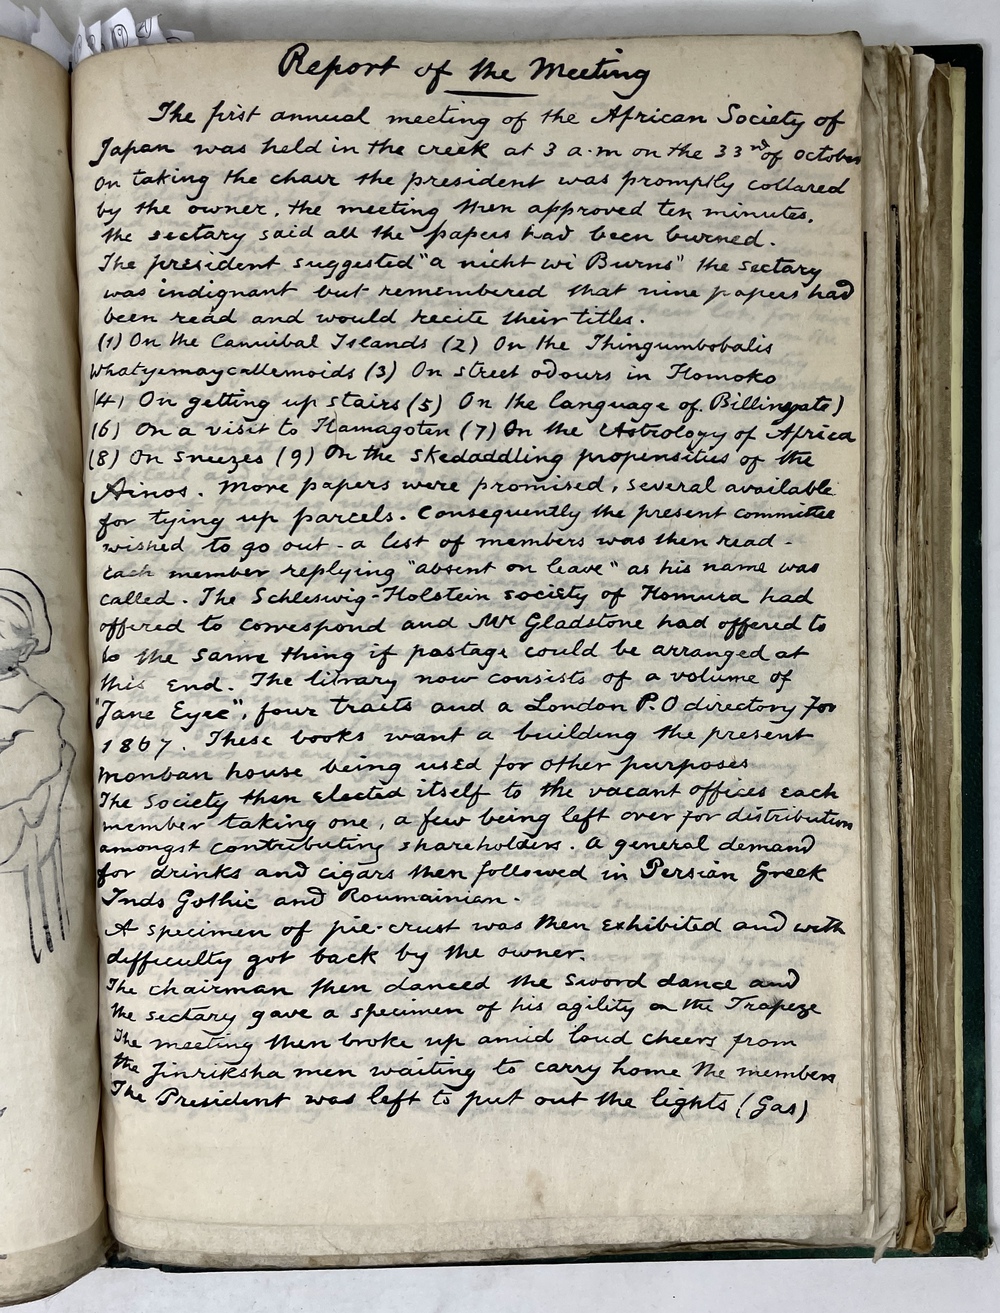 Report of the Meeting
The first annual meeting of the African Society of
Japan was held in the creek at 3 a.m on the 33nd of October
On taking the chair the president was promptly collared
by the owner, the meeting then approved ten minutes.
the sectary said all the papers had been burned.
The president suggested "a nicht wi Burns" the sectary
was indignant but remembered that nine papers had
been read and would recite their titles.
(1) On the Cannibal Islands (2) On the Thingumbobalis
Whatyemaycallemoids (3) On street odours in Homoko
(4) On getting up stairs (5) On the language of Billingsgate)
(6) On a visit to Hamagoten (7) On the Astrology of Africa
(8) On Sneezes (9) On the skedaddling propensities of the
Ainos. More papers were promised, several available
for tying up parcels. Consequently the present committee
wished to go out - a list of members was then read -
Each member replying "absent on leave" as his name was
called. The Schleswig-Holstein society of Homura had
offered to correspond and Mr Gladstone had offered to
do the same thing if postage could be arranged at
this End. The library now consists of a volume of
"Jane Eyre", four tracts and a London P.O directory for
1867. These books want a building the present
monban house being used for other purposes
The Society then elected itself to the vacant offices each
member taking one, a few being left over for distribution
amongst contributing shareholders. A general demand
for drinks and cigars then followed in Persian Greek
Indo Gothic and Roumainian.
A specimen of pie-crust was then exhibited and with
difficulty got back by the owner.
The chairman then danced the Sword dance and
the sectary gave a specimen of his agility on the Trapeze
The meeting then broke up amid loud cheers from
the Jinriksha men waiting to carry home the members
The President was left to put out the lights (Gas)